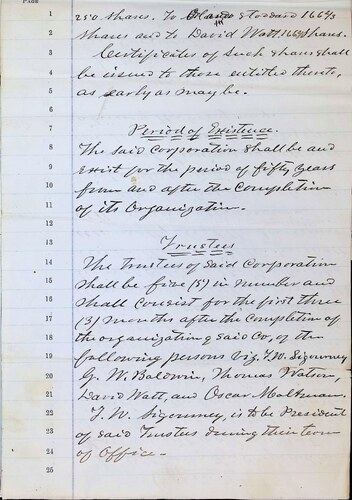 250 shares. To Orlando Stoddard 166⅔
shares and to David Watt 166⅔ shares.
Certificates of Such Shares shall
be issued to those entitled thereto,
as early as may be.
Period of Existence.
The said Corporation shall be and
exist for the period of fifty years
from and after the Completion
of its Organization.
Trustees
The trustees of said Corporation
shall be five (5) in number and
shall consist for the first three
(3) months after the completion of
the organization of said Co, of the
following persons viz, T. W. Sigourney
G. W. Baldwin, Thomas Watson,
David Watt, and Oscar
T. W. Sigourney, is to be President
of said Trustees during their term
of Office.-
1
2
3
4
5
6
7
8
9
10
11
12
13
14
15
16
17
18
19
20
21
22
23
24
25